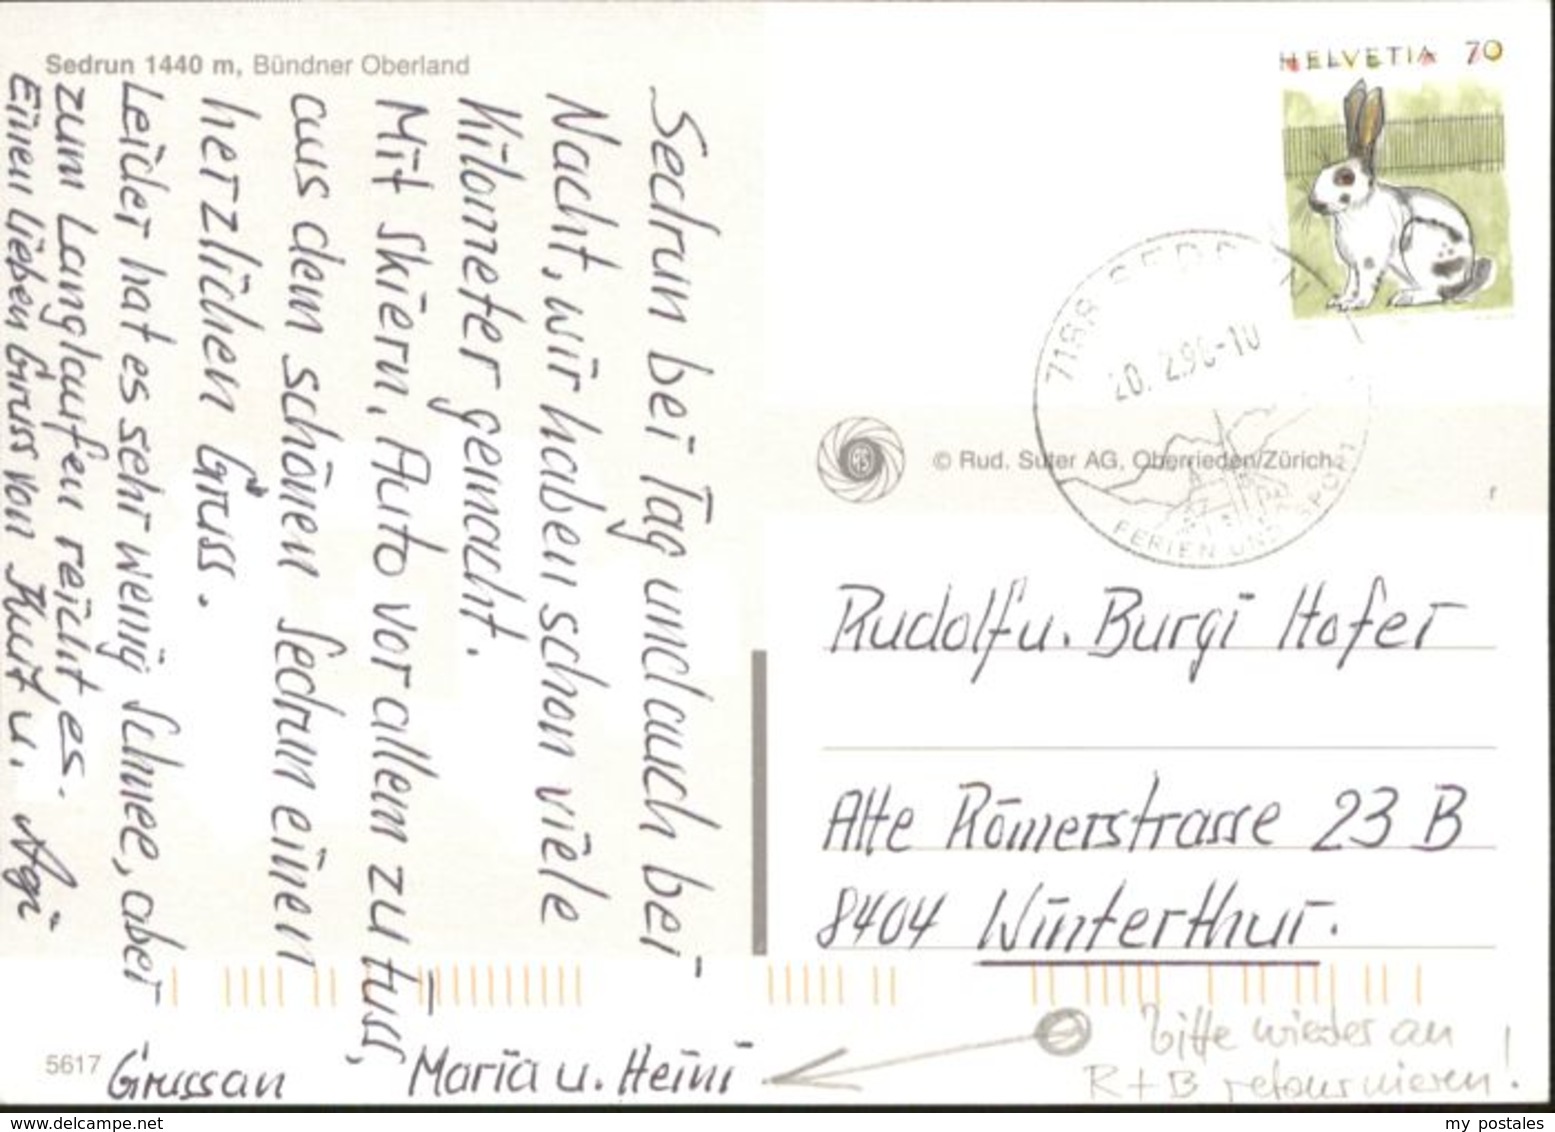 Sedrun 1440 m, Bündner Oberland
Sedrun bei Tag und auch bei
Nacht, wir haben schon viele
Kilometer gemacht.
Mit skiern, Auto vor allem zu fuss,
aus dem schönen Sedrun einen
herzlichen Gruss.
Leider hat es sehr wenig Schnee, aber
zum Langlaufen reicht es.
Einen lieben Gruss von Kurt u. Agi
Gruss an Maria u. Heini
5617
HELVETIA 70
7188 SEDRUN
20. 2.90-10
FERIEN UND SPORT
© Rud. Suter AG, Oberrieden/Zürich
Rudolf u. Burgi Hofer
Alte Römerstrasse 23 B
8404 Winterthur.
Bitte wieder an
R + B retournieren!
my postales